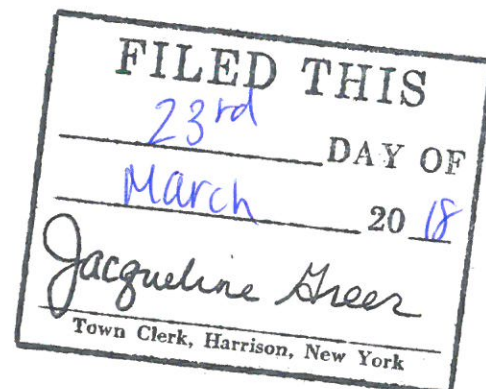 FILED THIS
23rd DAY OF
March 20 18
Jacqueline Greer
Town Clerk, Harrison, New York